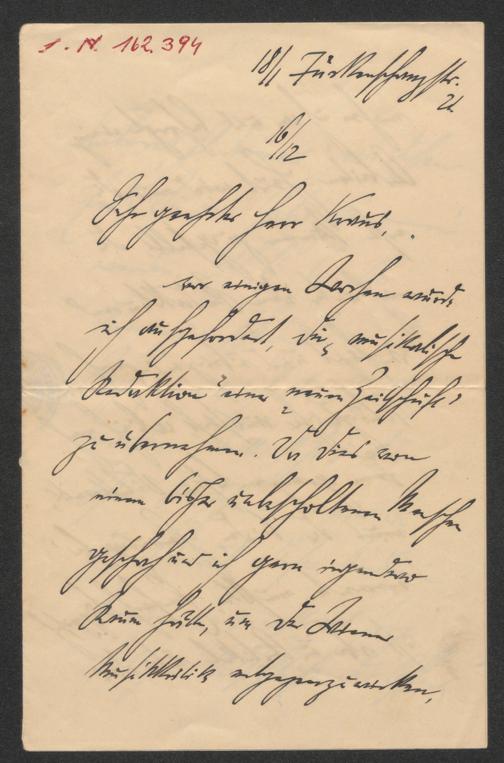 I. N. 162.394
18/1 Türkenschanzstr.
16/12
Sehr geehrter Herr Kraus,
vor einigen Wochen wurde
ich aufgefordert, die „musikalische
Redaktion“ einer „neuen Zeitschrift“
zu übernehmen. Da dies von
einem bisher unbescholtenen Menschen
geschah und ich gern irgendwo
Raum hätte, um der Wiener
Musikkritik entgegenzuwirken,